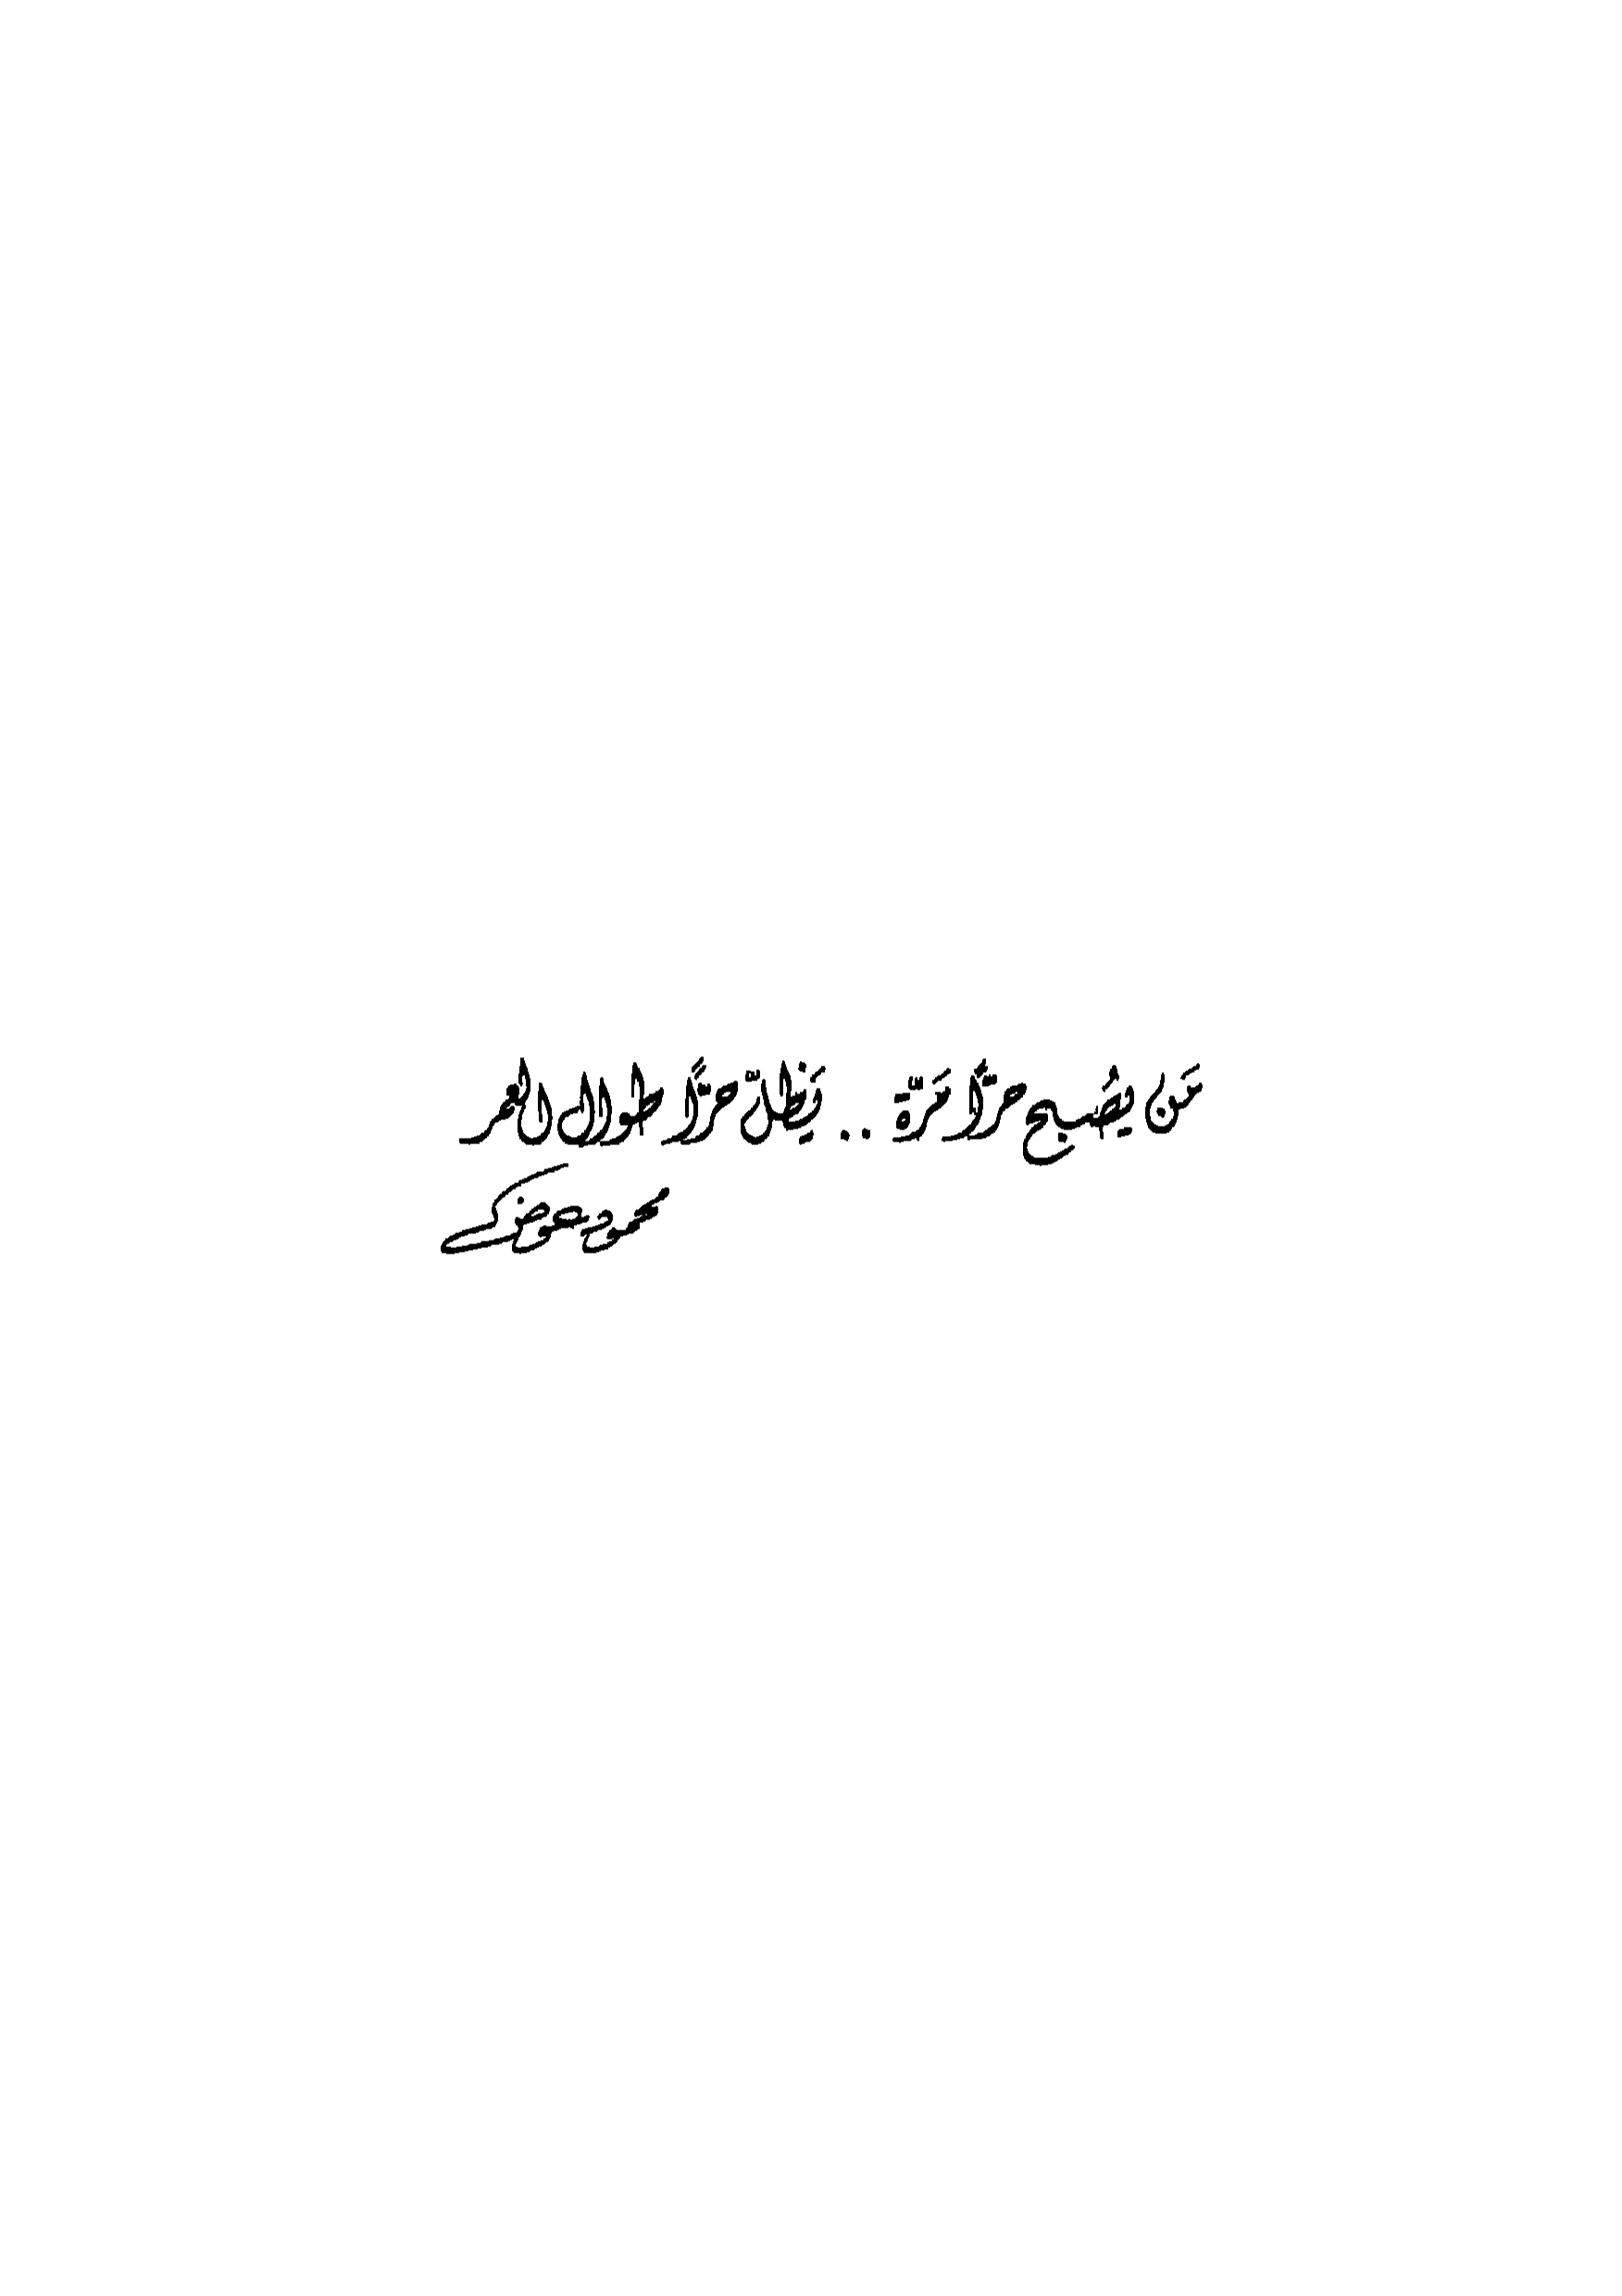 مَن يُصبح حرًّا مَرّة .. يَظلّ حرًّا طوال العمر
محمود عوض